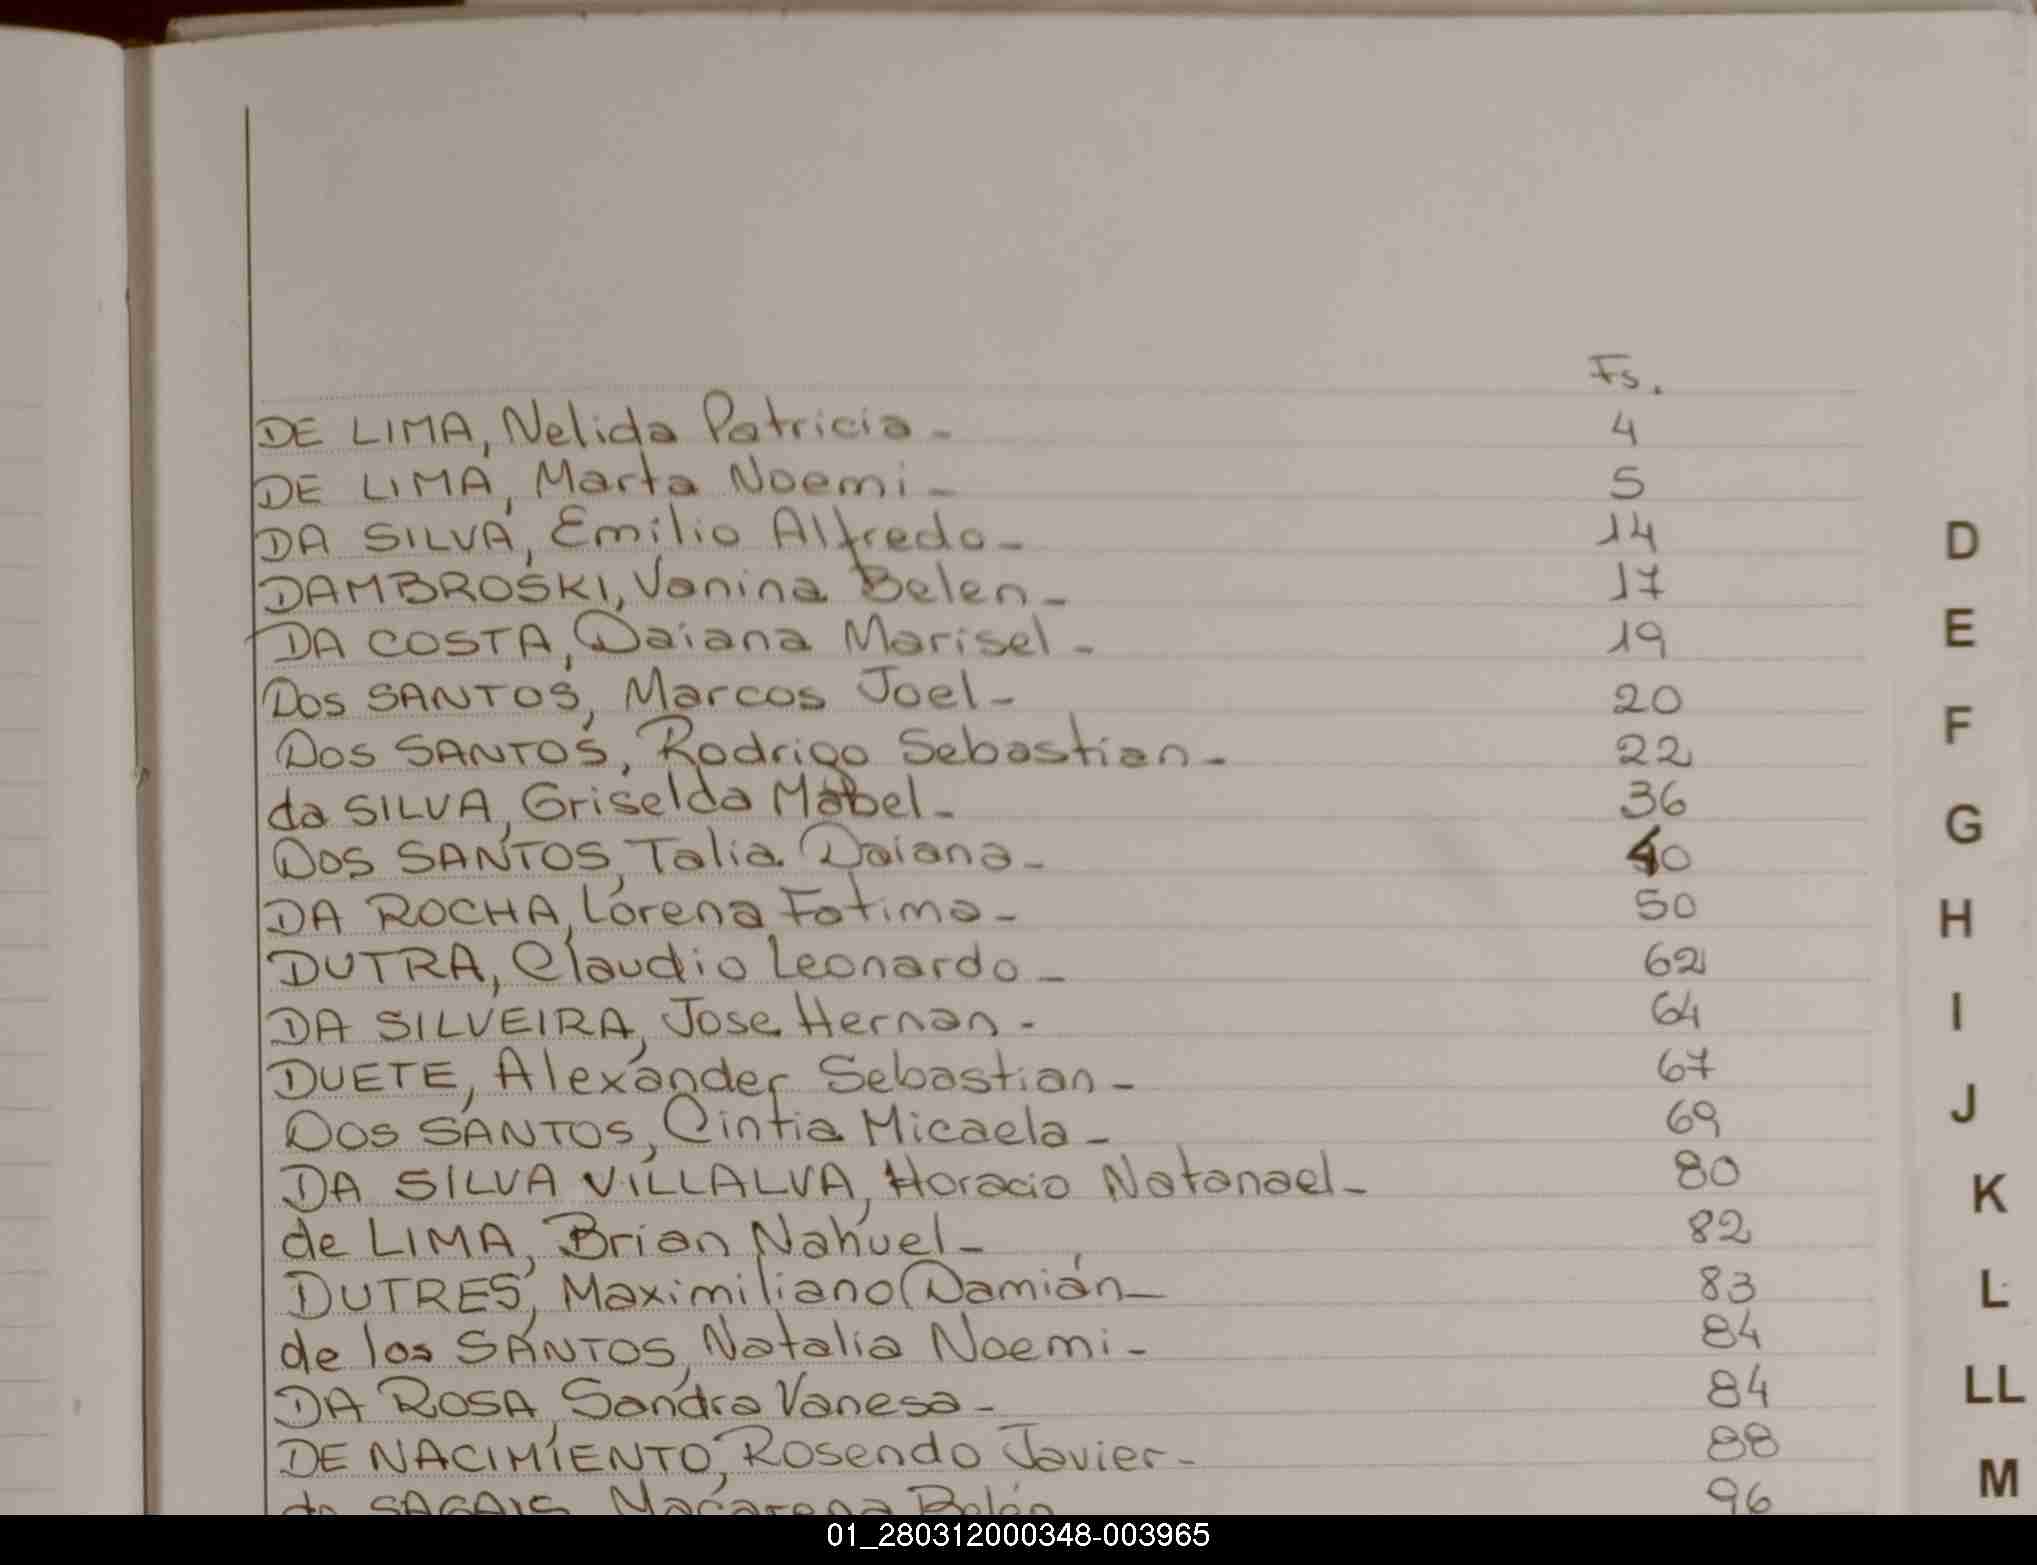 Fs.
DE LIMA, Nelida Patricia - 4
DE LIMA, Marta Noemi - 5
DA SILVA, Emilio Alfredo - 14
DAMBROSKI, Vanina Belen - 17
DA COSTA, Daiana Marisel - 19
Dos SANTOS, Marcos Joel - 20
Dos SANTOS, Rodrigo Sebastian - 22
da SILVA, Griselda Mabel - 36
Dos SANTOS, Talia Daiana - 40
DA ROCHA, Lorena Fatima - 50
DUTRA, Claudio Leonardo - 62
DA SILVEIRA, Jose Hernan - 64
DUETE, Alexander Sebastian - 67
Dos SANTOS, Cintia Micaela - 69
DA SILVA VILLALVA, Horacio Natanael - 80
de LIMA, Brian Nahuel - 82
DUTRES, Maximiliano Damián - 83
de los SANTOS, Natalia Noemi - 84
DA ROSA, Sandra Vanesa - 84
DE NACIMIENTO, Rosendo Javier - 88
Macarena Belén 96
D
E
F
G
H
I
J
K
L
LL
M
01_280312000348-003965